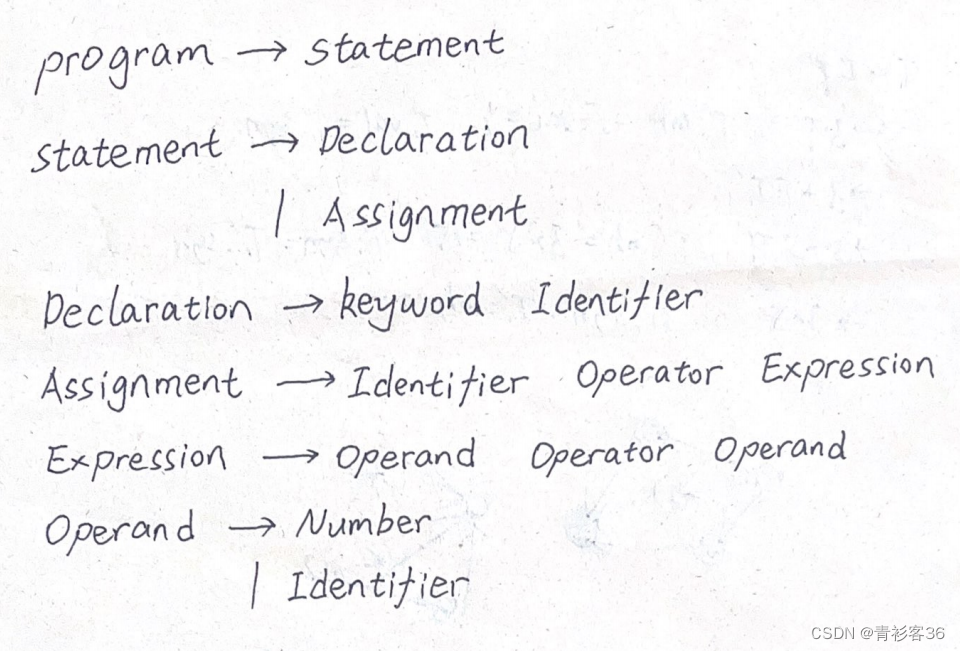 program → statement
statement → Declaration
| Assignment
Declaration → keyword Identifier
Assignment → Identifier Operator Expression
Expression → Operand Operator Operand
Operand → Number
| Identifier
CSDN @青衫客36